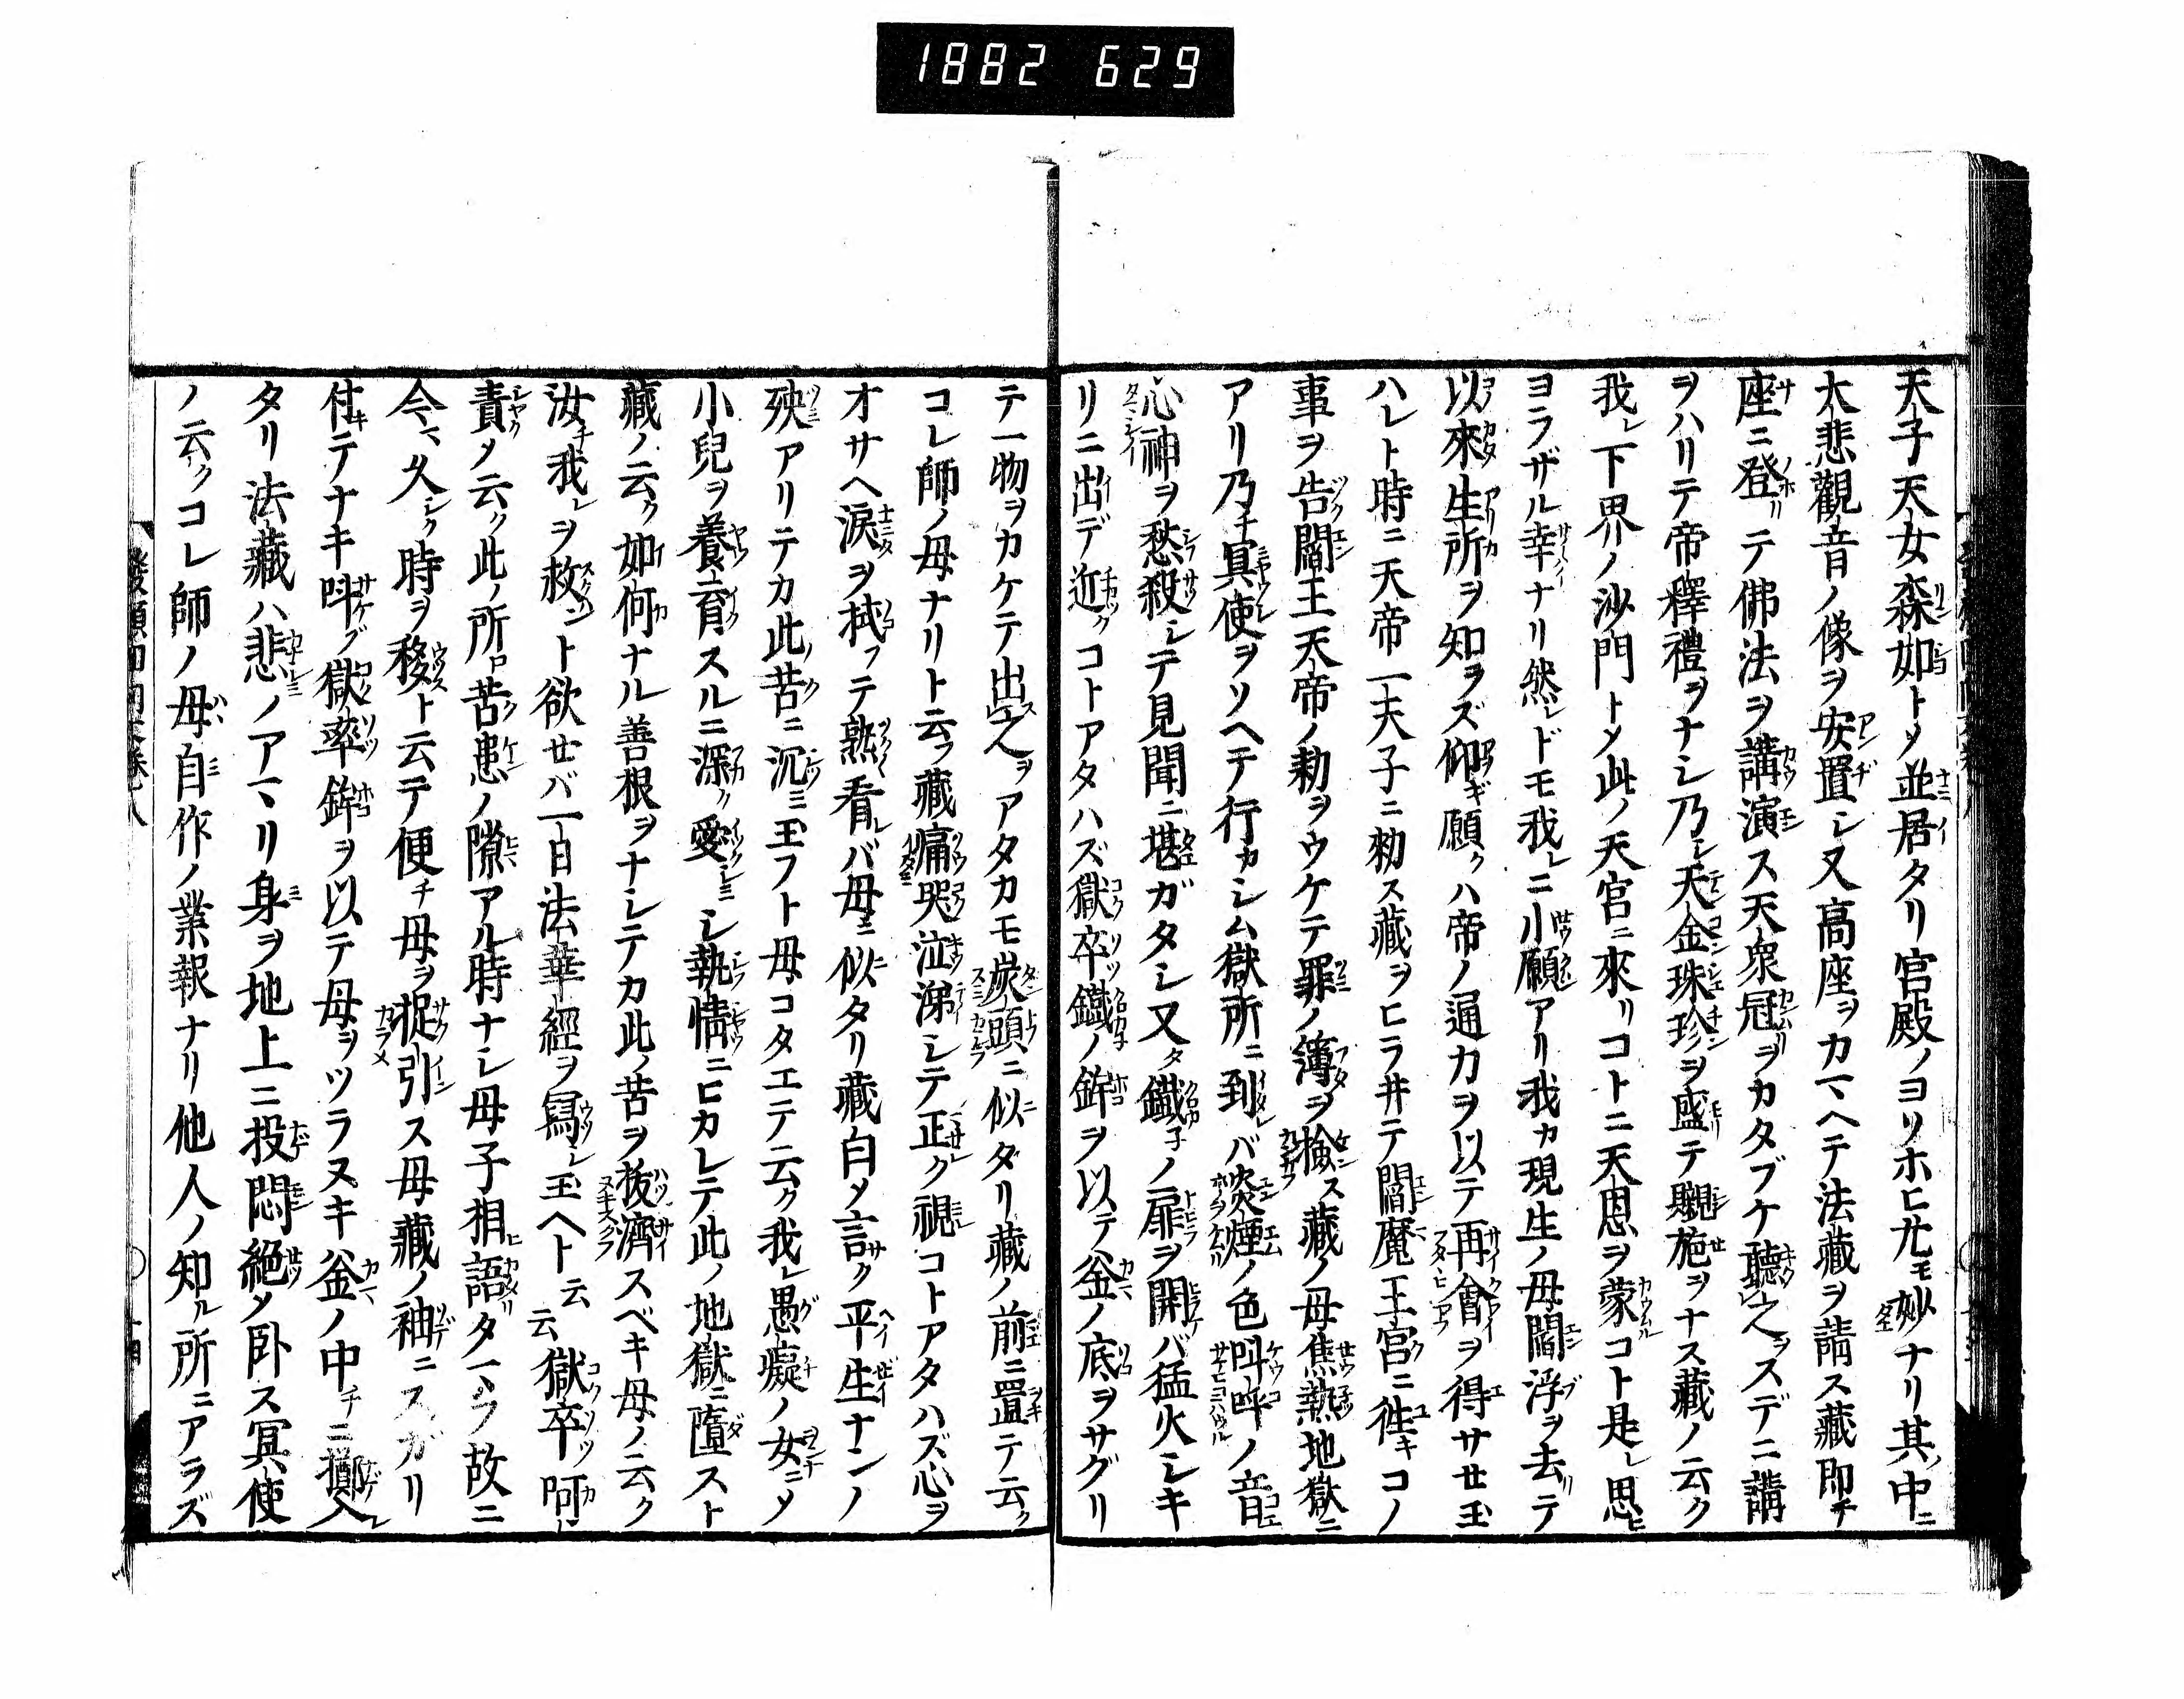 1882 629
天子天女森如トメ並居タリ宮殿ノヨソホヒ尤モ妙ナリ其中ニ
大悲觀音ノ像ヲ安置シ又高座ヲカマヘテ法藏ヲ請ス藏即チ
座ニ登リテ佛法ヲ講演ス天衆冠ヲカタブケ聽之ヲスデニ講
ヲハリテ帝釋禮ヲナシ乃シ天金珠珍ヲ盛テ覼施ヲナス藏ノ云ク
我レ下界ノ沙門トメ此ノ天宮ニ來リコトニ天恩ヲ蒙コト是レ思ヒ
ヨラザル幸ナリ然レドモ我レニ小願アリ我カ現生ノ母閻浮ヲ去リテ
以來生所ヲ知ラズ仰ギ願クハ帝ノ通力ヲ以テ再會ヲ得サセ玉
ハレト時ニ天帝一天子ニ勑ス藏ヲヒラ井テ閻魔王宮ニ徃キコノ
事ヲ告閻王天帝ノ勅ヲウケテ罪ノ簿ヲ撿ス藏ノ母焦熱地獄ニ
アリ乃チ冥使ヲソヘテ行カシム獄所ニ到レバ焔煙ノ色呌呼ノ音
心神ヲ愁殺シテ見聞ニ堪ガタシ又タ鐵子ノ扉ヲ開ケバ猛火シキ
リニ出デ近ツクコトアタハズ獄卒鐵ノ鉾ヲ以テ釜ノ底ヲサグリ
テ一物ヲカケテ出ス之ヲアタカモ炭頭ニ似タリ藏ノ前ニ置テ云ク
コレ師ノ母ナリト云フ藏痛哭泣涕シテ正シク視コトアタハズ心ヲ
オサヘ涙ヲ拭フテ熟看レバ母ニ似タリ藏白メ言ク平生ナンノ
殃アリテカ此ノ苦ニ沉ミ玉フト母コタエテ云ク我レ愚癡ノ女ニメ
小兒ヲ養育スルニ深ク愛シ執情ニヒカレテ此ノ地獄ニ墮スト
藏ノ云ク如何ナル善根ヲナシテカ此ノ苦ヲ拔濟スベキ母ノ云ク
汝チ我レヲ救ント欲セバ一日法華經ヲ寫シ玉ヘト云云獄卒阿
責メ云ク此ノ所ロ苦患ノ隙アル時ナシ母子相語タマフ故ニ
今マ久シク時ヲ移スト云テ便チ母ヲ捉引ス母藏ノ袖ニスガリ
付テナキ呌ブ獄率鉾ヲ以テ母ヲツラヌキ釜ノ中チニ擲入
タリ法藏ハ悲ノアマリ身ヲ地上ニ投悶絶メ卧ス冥使
ノ云クコレ師ノ母自作ノ業報ナリ他人ノ知ル所ニアラズ